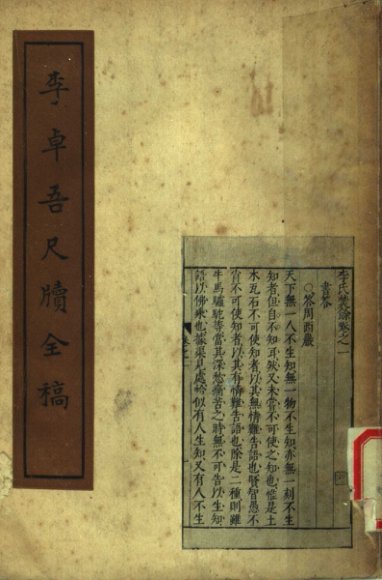 李卓吾尺牘全稿
李氏焚餘卷之一
書答
○答周西巖
天下無一人不生知無一物不生知亦無一刻不生
知者但自不知耳然又未嘗不可使之知也惟是土
木瓦石不可使知者以其無情難告語也賢智愚不
肖不可使知者以其有情難告語也除是二種則雖
牛馬驢駝等當其深愁痛苦之時無不可告以生知
語以佛乘也據渠見處恰似有人生知又有人不生
卷之一